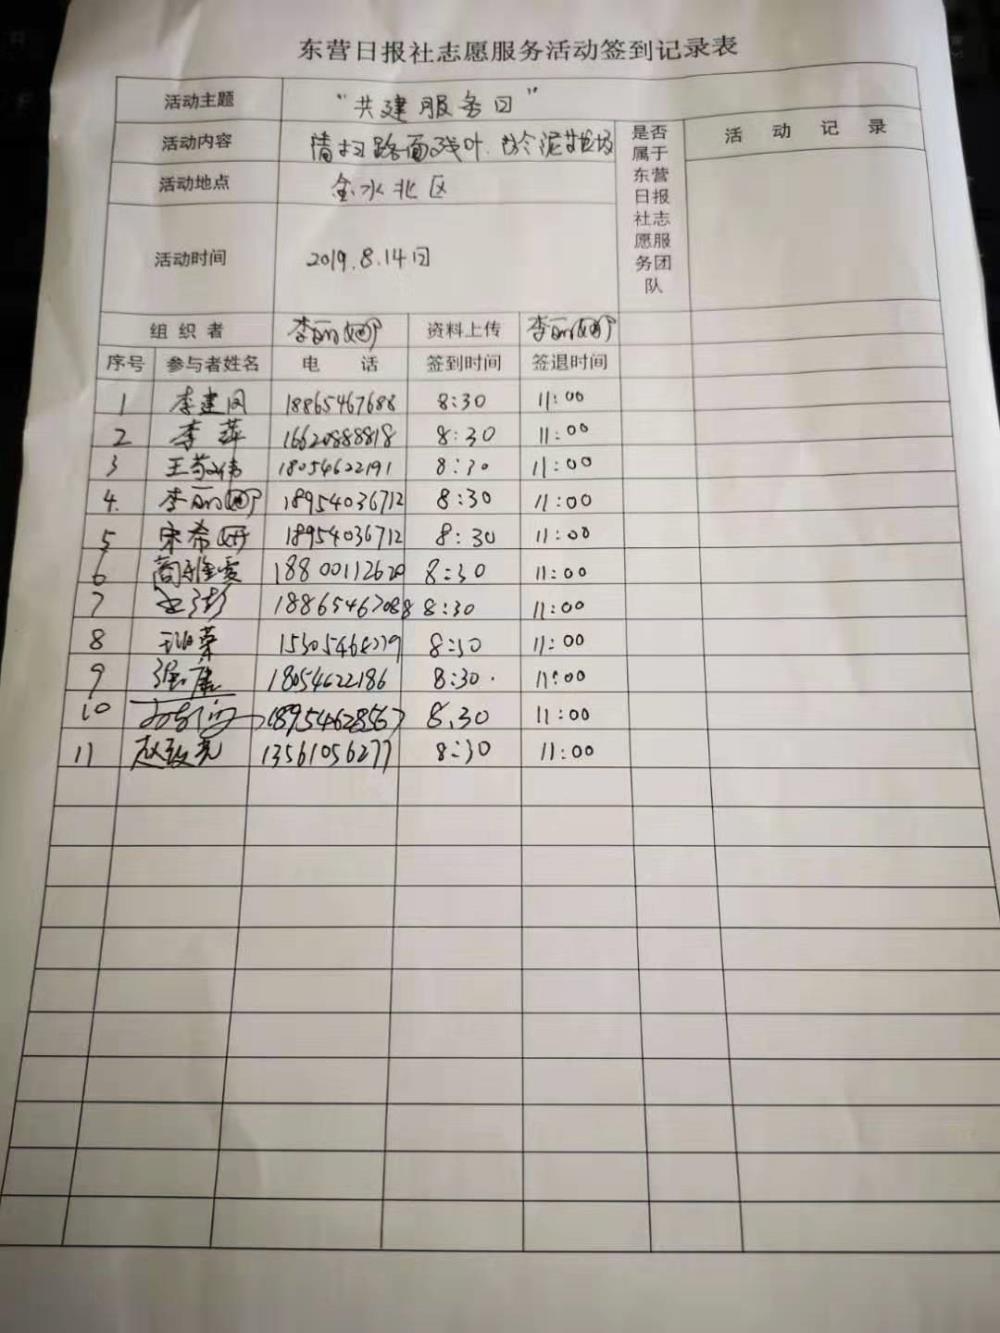 东营日报社志愿服务活动签到记录表
活动主题 "共建服务日"
活动内容 清扫路面残叶、 是否属于东营日报社志愿服务团队 活动记录
活动地点 金水北区
活动时间 2019.8.14日
组织者 李丽娜 资料上传 李丽娜
序号 参与者姓名 电话 签到时间 签退时间
1 李建国 18865467688 8:30 11:00
2 李萍 16620888818 8:30 11:00
3 王 伟 18054622191 8:30 11:00
4. 李丽娜 18954036712 8:30 11:00
5 宋希妍 18954036712 8:30 11:00
6 18800112620 8:30 11:00
7 8:30 11:00
8 8:30 11:00
9 18054622186 8:30. 11:00
10 18954628567 8.30 11:00
11 赵 亮 13561056277 8:30 11:00